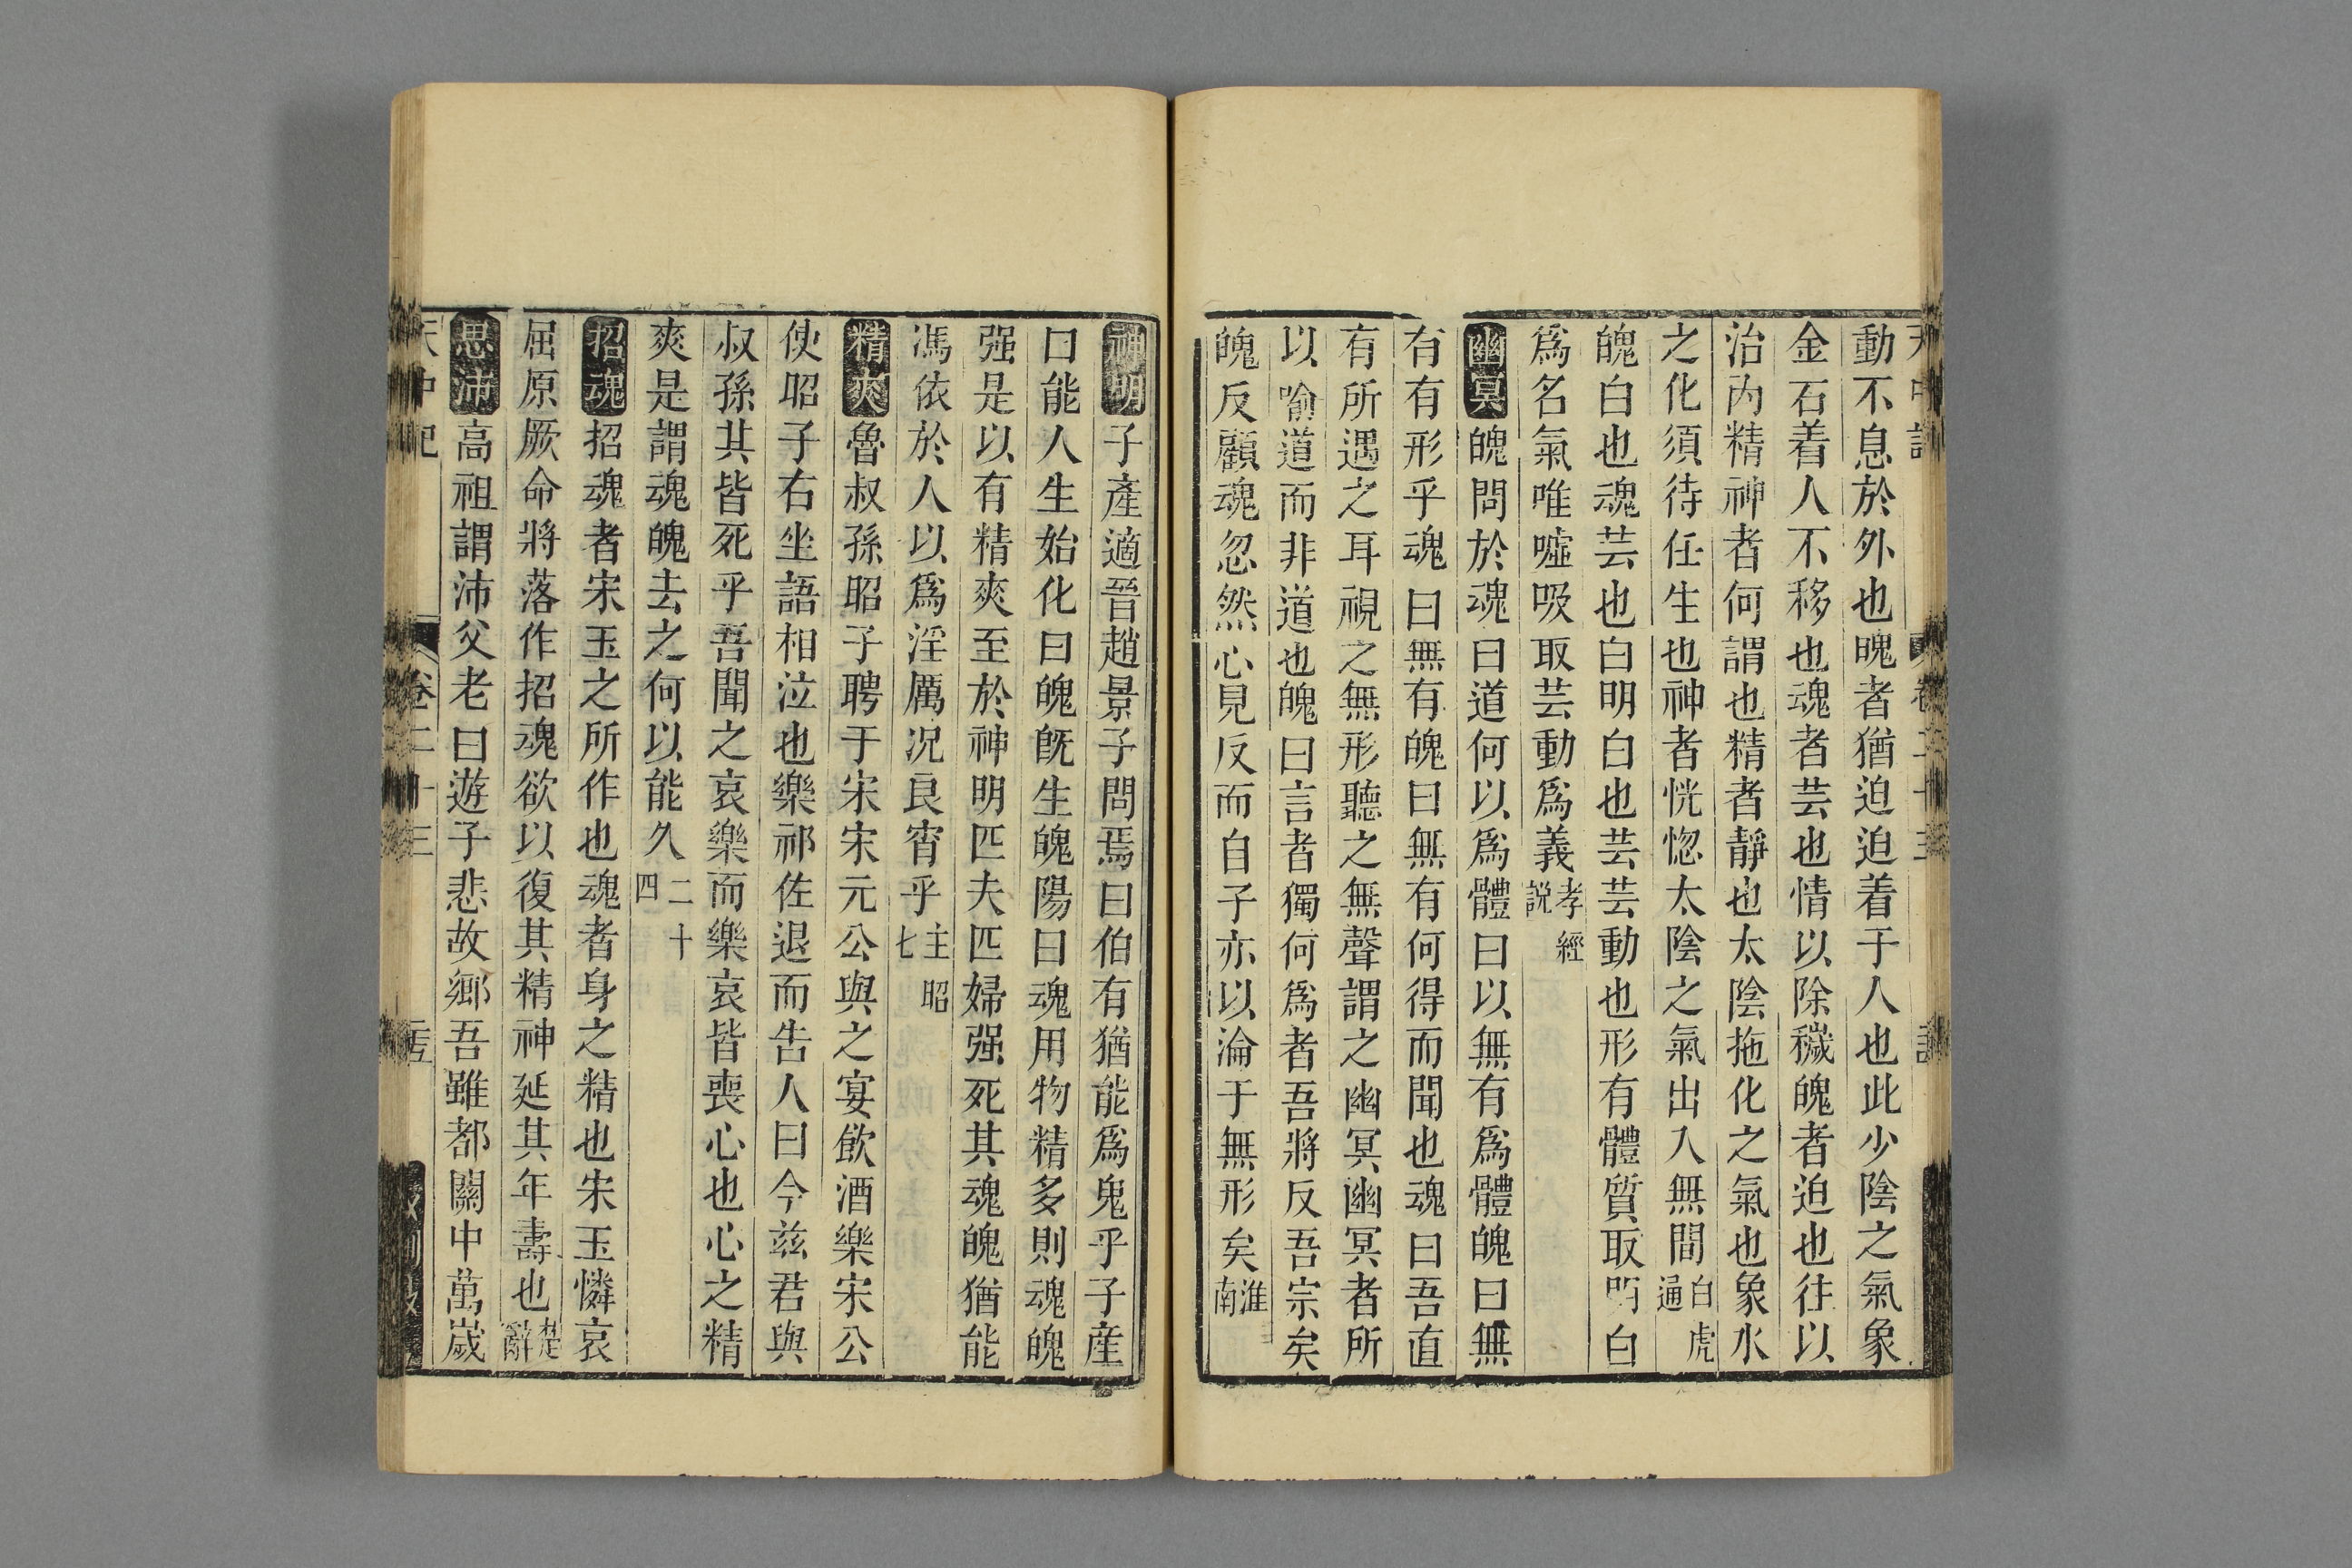 動不息於外也魄者猶迫迫着于人也此少陰之氣象
金石着人不移也魂者芸也情以除穢魄者迫也往以
治內精神者何謂也精者靜也太陰拖化之氣也象水
之化須待任生也神者恍惚太陰之氣出入無間白虎通
魄白也魂芸也白明白也芸芸動也形有體質取明白
爲名氣唯噓吸取芸動爲義孝經説
幽冥魄問於魂曰道何以爲體曰以無有爲體魄曰無
有有形乎魂曰無有魄曰無有何得而聞也魂曰吾直
有所遇之耳視之無形聽之無聲謂之幽冥幽冥者所
以喻道而非道也魄曰言者獨何爲者吾將反吾宗矣
魄反顧魂忽然心見反而自子亦以淪于無形矣淮南
神明子產適晉趙景子問焉曰伯有猶能爲鬼乎子產
曰能人生始化曰魄旣生魄陽曰魂用物精多則魂魄
强是以有精爽至於神明匹夫匹婦强死其魂魄猶能
馮依於人以爲淫厲况良宵乎主昭七
精爽魯叔孫昭子聘于宋宋元公與之宴飲酒樂宋公
使昭子右坐語相泣也樂祁佐退而告人曰今兹君與
叔孫其皆死乎吾聞之哀樂而樂哀皆喪心也心之精
爽是謂魂魄魄去之何以能久二十四
招魂招魂者宋玉之所作也魂者身之精也朱玉憐哀
屈原厥命將落作招魂欲以復其精神延其年壽也楚辭
思沛高祖謂沛父老曰遊子悲故鄉吾雖都關中萬歲
天中記 卷二十三